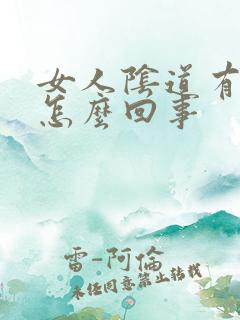 女人陰道有
怎麼回事
雷-阿倫
未经同意禁止转载